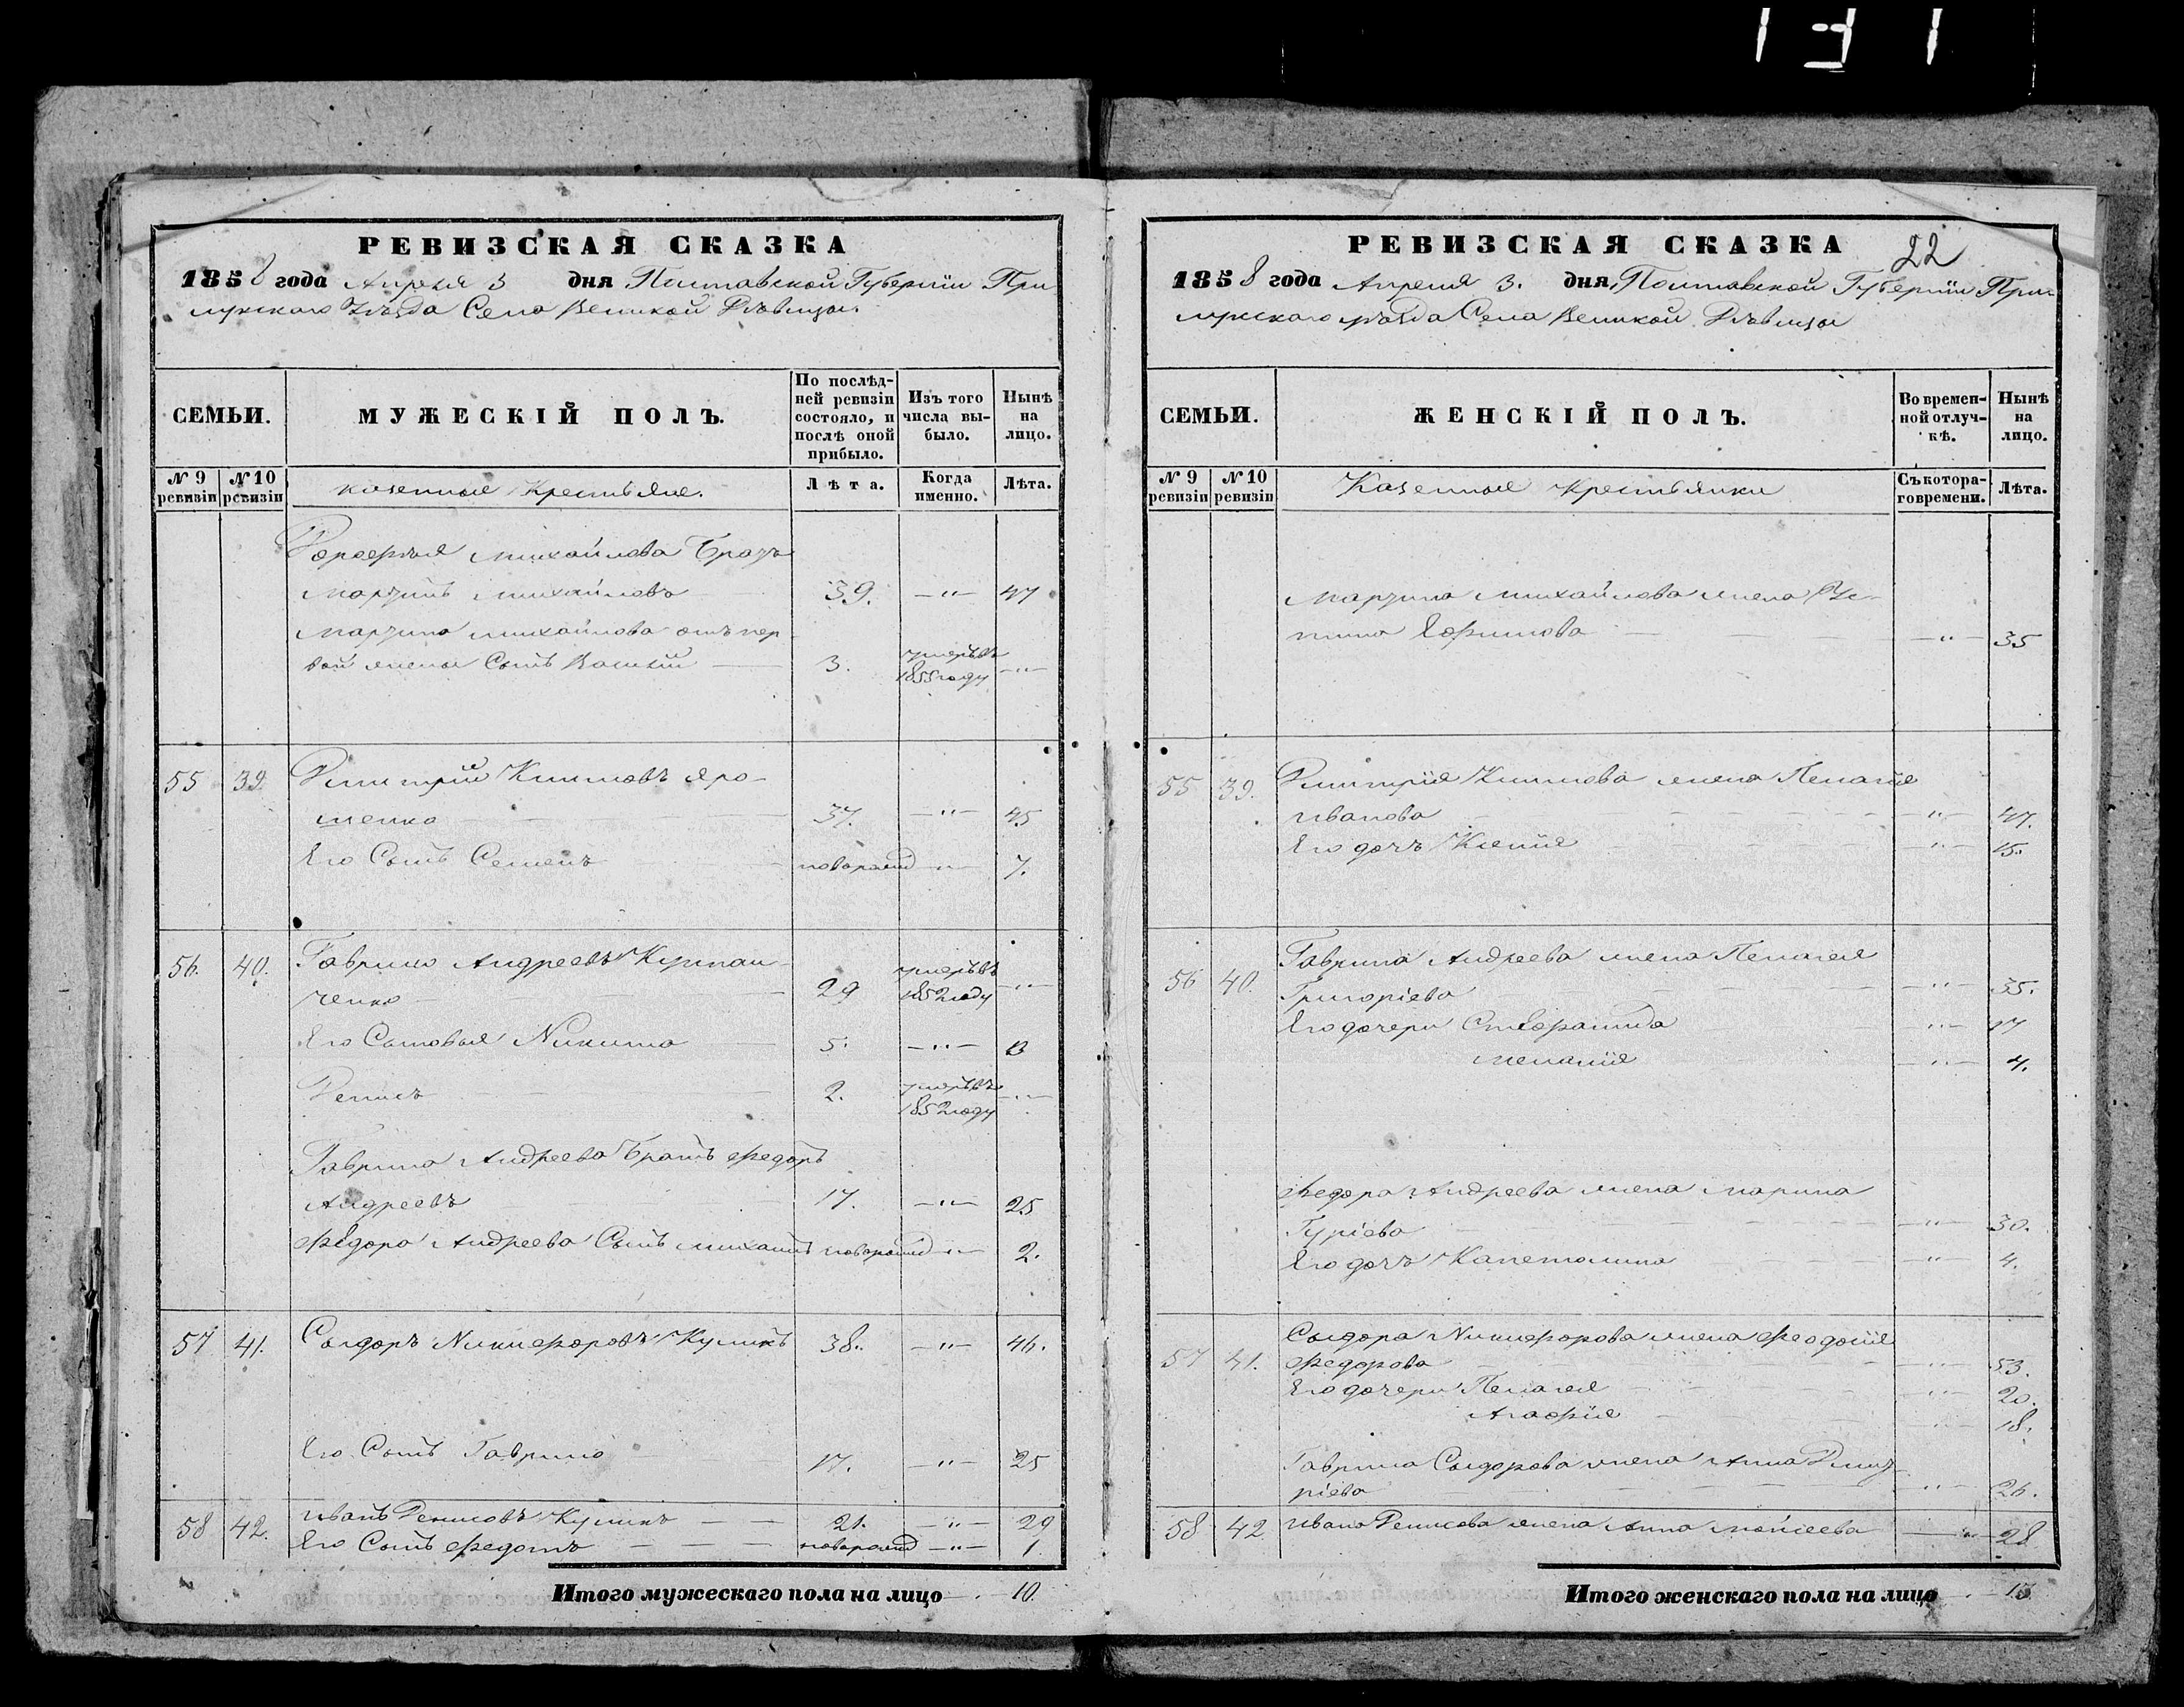 22
РЕВИЗСКАЯ СКАЗКА
1858 года Апреля 3 дня Полтавской Губернiи При
лукскаго Уѣзда Села Великой Дѣвицы.
СЕМЬИ.
МУЖЕСКIЙ ПОЛЪ.
По послѣд-
ней ревизiи
состояло, и
послѣ оной
прибыло.
Изъ того
числа вы-
было.
Нынѣ
на
лицо.
№ 9 ревизiи
№ 10 ревизiи
казенные Крестьяне.
Лѣта.
Когда именно.
Лѣта.
Дорофея Михайлова Братъ
Мартинъ Михайловъ 39. —"— 47
Мартина Михайлова отъ пер
вой жены Сынъ Василiй — 3. умеръ въ 1855 году —"—
55 39. Дмитрiй Климовъ Яро-
шенко 37. —"— 45
Его Сынъ Семенъ новорожд —"— 7.
56. 40. Гаврило Андреевъ Кушпан-
ченко 29 умеръ въ 1852 году —"—
Его Сыновья Никита 5. —"— 13
Денисъ 2. умеръ въ 1852 году —"—
Гаврила Андреева Братъ Федоръ
Андреевъ 17. —"— 25
Федора Андреева Сынъ Михаилъ новорожд —"— 2.
57 41. Сыдоръ Никифоровъ Куликъ 38. —"— 46.
Его Сынъ Гаврило 17. —"— 25
58 42. Иванъ Денисовъ Куликъ — — 21. —"— 29
Его Сынъ Федотъ — — — новорожд —"— 1.
Итого мужескаго пола на лицо 10.
РЕВИЗСКАЯ СКАЗКА
1858 года Апреля 3. дня, Полтавской Губернiи При-
лукскаго уѣзда Села Великой Дѣвицы
СЕМЬИ.
ЖЕНСКIЙ ПОЛЪ.
Во времен-
ной отлуч-
кѣ.
Нынѣ
на
лицо.
№ 9 ревизiи
№ 10 ревизiи
Казенные Крестьянки
Съ котора-
го времени.
Лѣта.
Мартина Михайлова жена Ус-
тина Ефимова —"— 35
55 39. Дмитрiя Климова жена Пелагiя
Иванова —"— 47.
Его дочь Ксенiя —"— 15.
56 40. Гаврила Андреева жена Пелагея
Григорiева —"— 35.
Его дочери —"— 17
Меланiя —"— 4.
Федора Андреева жена Марина
Гурiева —"— 30.
Его дочь Капетолина —"— 4.
Сыдора Никифорова жена Феодосiя
57 41. Федорова —"— 53.
Его дочери Пелагея —"— 20.
Агафiя —"— 18.
Гаврила Сыдорова жена Анна Дмит-
рiева —"— 26.
58 42 Ивана Денисова жена Анна Моисеева —"— 28
Итого женскаго пола на лицо